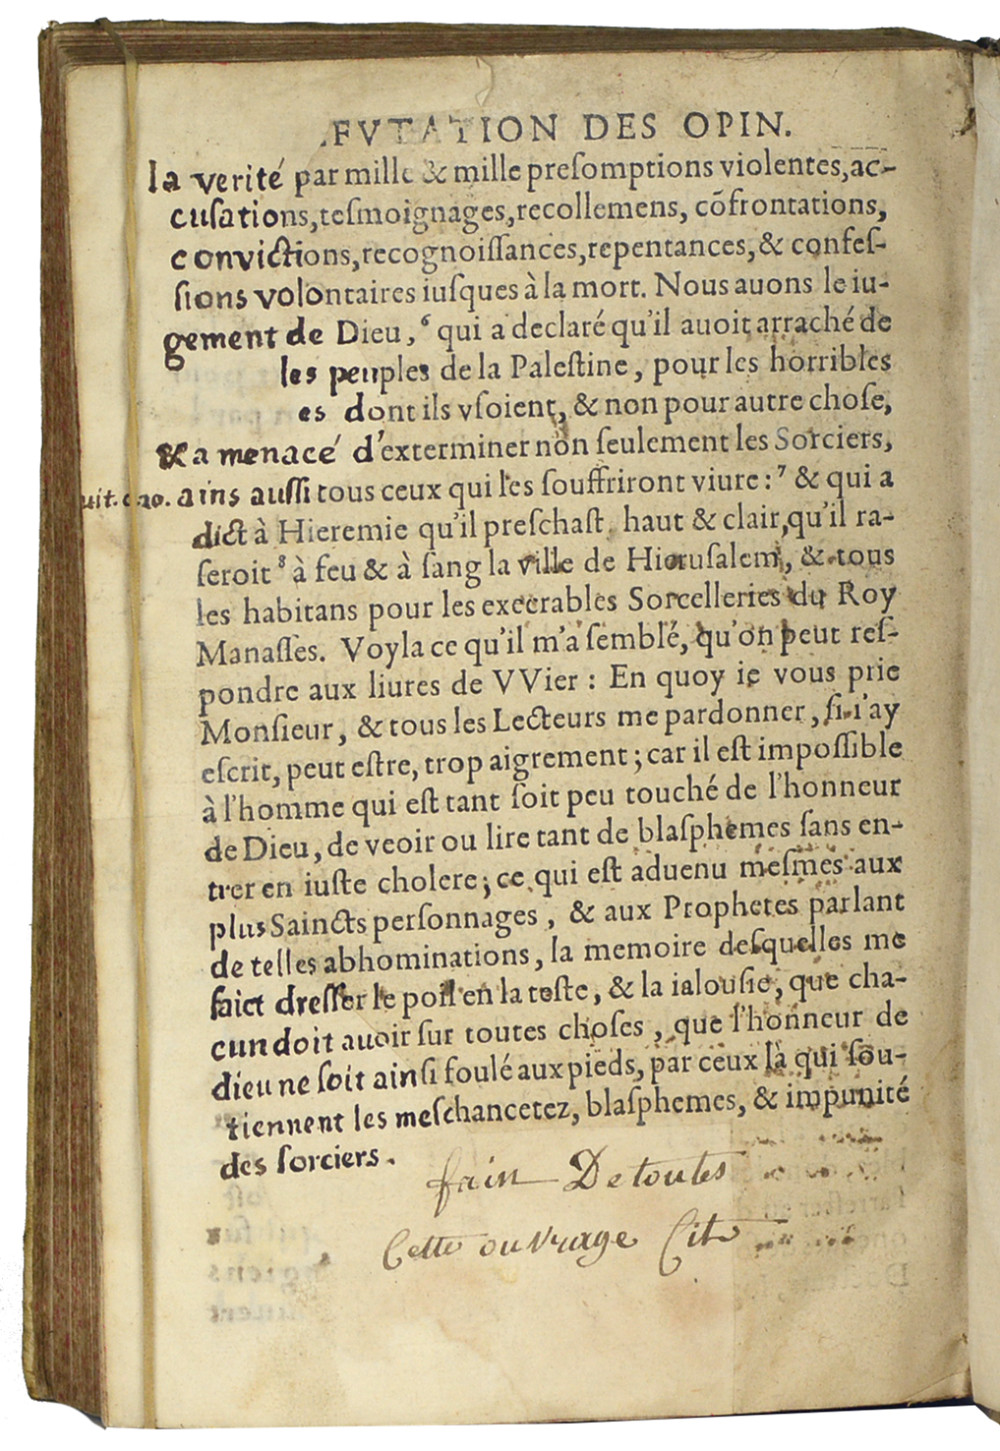 .FVTATION DES OPIN.
la verité par mille & mille preſomptions violentes, ac-
cuſations, teſmoignages, recollemens, cõfrontations,
convictions, recognoiſſances, repentances, & confeſ-
ſions volontaires iuſques à la mort. Nous auons le iu-
gement de Dieu, ⁶ qui a declaré qu'il auoit arraché de
les peuples de la Paleſtine, pour les horribles
es dont ils vſoient, & non pour autre choſe,
& a menacé d'exterminer non ſeulement les Sorciers,
uit. cao. ains auſſi tous ceux qui les ſouffriront viure: ⁷ & qui a
dict à Hieremie qu'il preſchaſt haut & clair, qu'il ra-
ſeroit ⁸ à feu & à ſang la ville de Hieruſalem, & tous
les habitans pour les execrables Sorcelleries du Roy
Manaſſes. Voyla ce qu'il m'a ſemblé, qu'on peut reſ-
pondre aux liures de VVier : En quoy ie vous prie
Monſieur, & tous les Lecteurs me pardonner, ſi i'ay
eſcrit, peut eſtre, trop aigrement; car il eſt impoſſible
à l'homme qui eſt tant ſoit peu touché de l'honneur
de Dieu, de veoir ou lire tant de blaſphemes ſans en-
trer en iuſte cholere; ce qui eſt aduenu meſmes aux
plus Saincts perſonnages, & aux Prophetes parlant
de telles abhominations, la memoire deſquelles me
faict dreſſer le poil en la teſte, & la ialouſie, que cha-
cun doit auoir ſur toutes choſes, que l'honneur de
dieu ne ſoit ainſi foulé aux pieds, par ceux là qui ſou-
tiennent les meſchancetez, blaſphemes, & impunité
des ſorciers.
fain De toutes
Cette ouvrage Cit